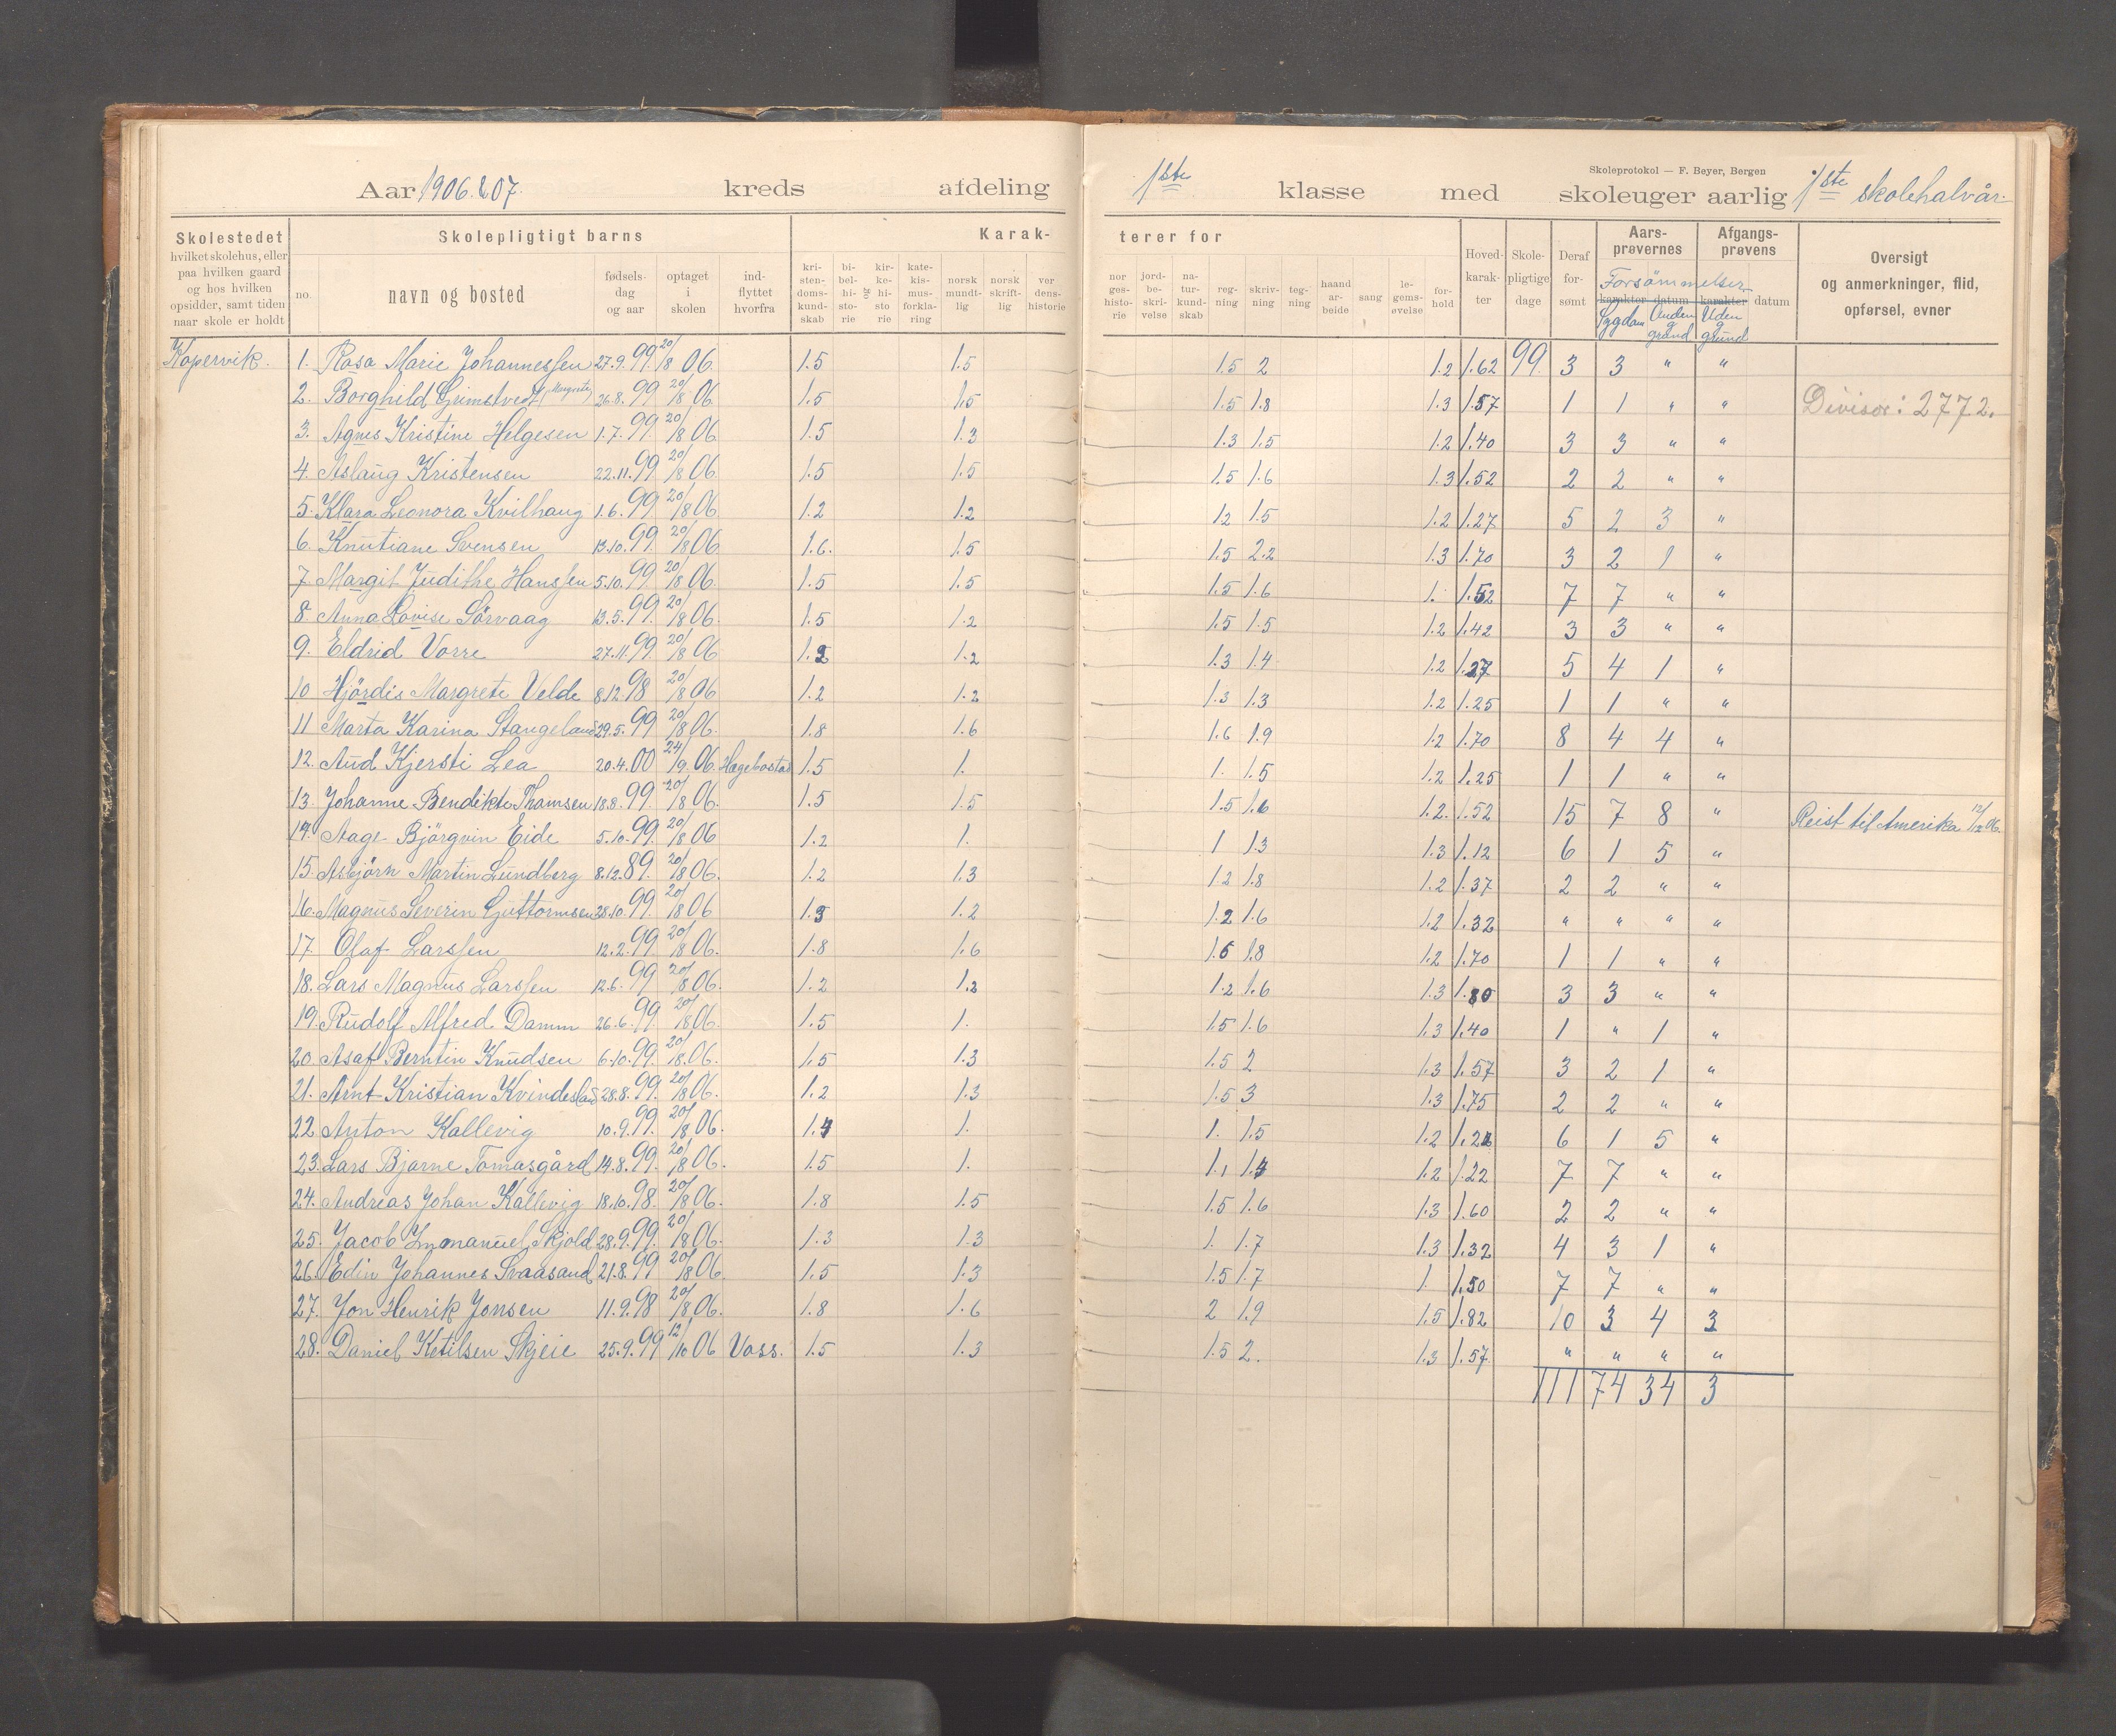 Skoleprotokol — F. Beyer, Bergen
Aar 1906 & 07. kreds afdeling 1ste klasse med skoleuger aarlig 1ste skolehalvår.
Skolestedet hvilket skolehus, eller paa hvilken gaard og hos hvilken opsidder, samt tiden naar skole er holdt
Skolepligtigt barns
no. navn og bosted fødselsdag og aar optaget i skolen indflyttet hvorfra
Karakterer for
kristendomskundskab bibelhistorie og kirkehistorie katekismusforklaring norsk mundtlig norsk skriftlig verdenshistorie norgeshistorie jordbeskrivelse naturkundskab regning skrivning tegning haandarbeide sang legemsøvelse forhold
Hovedkarakter Skolepligtige dage Deraf forsømt
Aarsprøvernes karakter datum Afgangsprøvens karakter datum
Forsömmelser
Sygdom Anden grund Uden grund
Oversigt og anmerkninger, flid, opførsel, evner
Kopervik. 1. Rosa Marie Johannessen 27.9.99. 20/8 06. 1.5 1.5 1.5 2 1.2 1.62 99. 3 3 " "
2. Borghild Grimstvedt (Margrete) 26.8.99 20/8 06. 1.5 1.5 1.5 1.8 1.3 1.57 1 1 " " Divisor: 2772.
3. Agnes Kristine Helgesen 1.7.99. 20/8 06. 1.5 1.3 1.3 1.5 1.2 1.40 3 3 " "
4. Aslaug Kristensen 22.11.99 20/8 06. 1.5 1.5 1.5 1.6 1.3 1.52 2 2 " "
5. Klara Leonora Kvilhaug 1.6.99 20/8 06. 1.2 1.2 1.2 1.5 1.2 1.27 5 2 3 "
6. Knutiane Svensen 13.10.99. 20/8 06. 1.6. 1.5 1.5 2.2 1.3 1.70 3 2 1 "
7. Margit Judithe Hanssen 5.10.99. 20/8 06. 1.5 1.5 1.5 1.6 1. 1.52 7 7 " "
8. Anna Lovise Sörvaag 13.5.99. 20/8 06. 1.5 1.2 1.5 1.5 1.2 1.42 3 3 " "
9. Eldrid Vorre 27.11.99. 20/8 06 1.2 1.2 1.3 1.4 1.2 1.27 5 4 1 "
10 Hjördis Margrete Velde 8.12.98 20/8 06 1.2 1.2 1.3 1.3 1.2 1.25 1 1 " "
11 Marta Karina Stangeland 29.5.99 20/8 06. 1.8 1.6 1.6 1.9 1.2 1.70 8 4 4 "
12. Aud Kjersti Lea 20.4.00 24/9 06. Hægebostad 1.5 1. 1. 1.5 1.2 1.25 1 1 " "
13. Johanne Bendikte Thamsen 18.8.99. 20/8 06. 1.5 1.5 1.5 1.6 1.2. 1.52 15 7 8 " Reist til Amerika 12/12 06.
14. Aage Björgvin Eide 5.10.99. 20/8 06 1.2 1. 1 1.3 1.3 1.12 6 1 5 "
15. Asbjörn Martin Lundberg 8.12.89. 20/8 06. 1.2 1.3 1.2 1.8 1.2 1.37 2 2 " "
16. Magnus Severin Guttormsen 28.10.99. 20/8 06 1.3 1.2 1.2 1.6 1.2 1.32 " " " "
17. Olaf Larssen 12.2.99. 20/8 06. 1.8 1.6 1.6 1.8 1.2 1.70 1 1 " "
18. Lars Magnus Larssen 12.6.99 20/8 06. 1.2 1.2 1.2 1.6 1.3 1.80 3 3 " "
19. Rudolf Alfred Damm 26.6.99 20/8 06. 1.5 1. 1.5 1.6 1.3 1.40 1 " 1 "
20. Asaf Berntin Knudsen 6.10.99. 20/8. 06. 1.5 1.3 1.5 2 1.3 1.57 3 2 1 "
21. Arnt Kristian Kvindesland 28.8.99. 20/8 06. 1.2 1.3 1.5 3 1.3 1.75 2 2 " "
22 Anton Kallevig 10.9.99. 20/8 06. 1.4 1. 1. 1.5 1.2 6 1 5 "
23. Lars Bjarne Tomasgård 14.8.99. 20/8 06. 1.5 1. 1.1 1.4 1.2 1.22 7 7 " "
24. Andreas Johan Kallevig 18.10.98. 20/8 06. 1.8 1.5 1.5 1.6 1.3 1.60 2 2 " "
25. Jacob Immanuel Skjold 28.9.99. 20/8 06. 1.3 1.3 1. 1.7 1.3 1.32 4 3 1 "
26. Edin Johannes Svaasand 21.8.99 20/8 06. 1.5 1.3 1.5 1.7 1. 1.50 7 7 " "
27. Jon Henrik Jonsen 11.9.98 20/8 06. 1.8 1.6 2 1.9 1.5 1.82 10 3 4 3
28. Daniel Ketilsen Skjeie 25.9.99 12/10 06 Voss. 1.5 1.3 1.5 2. 1.3 1.57 " " " "
111 74 34 3